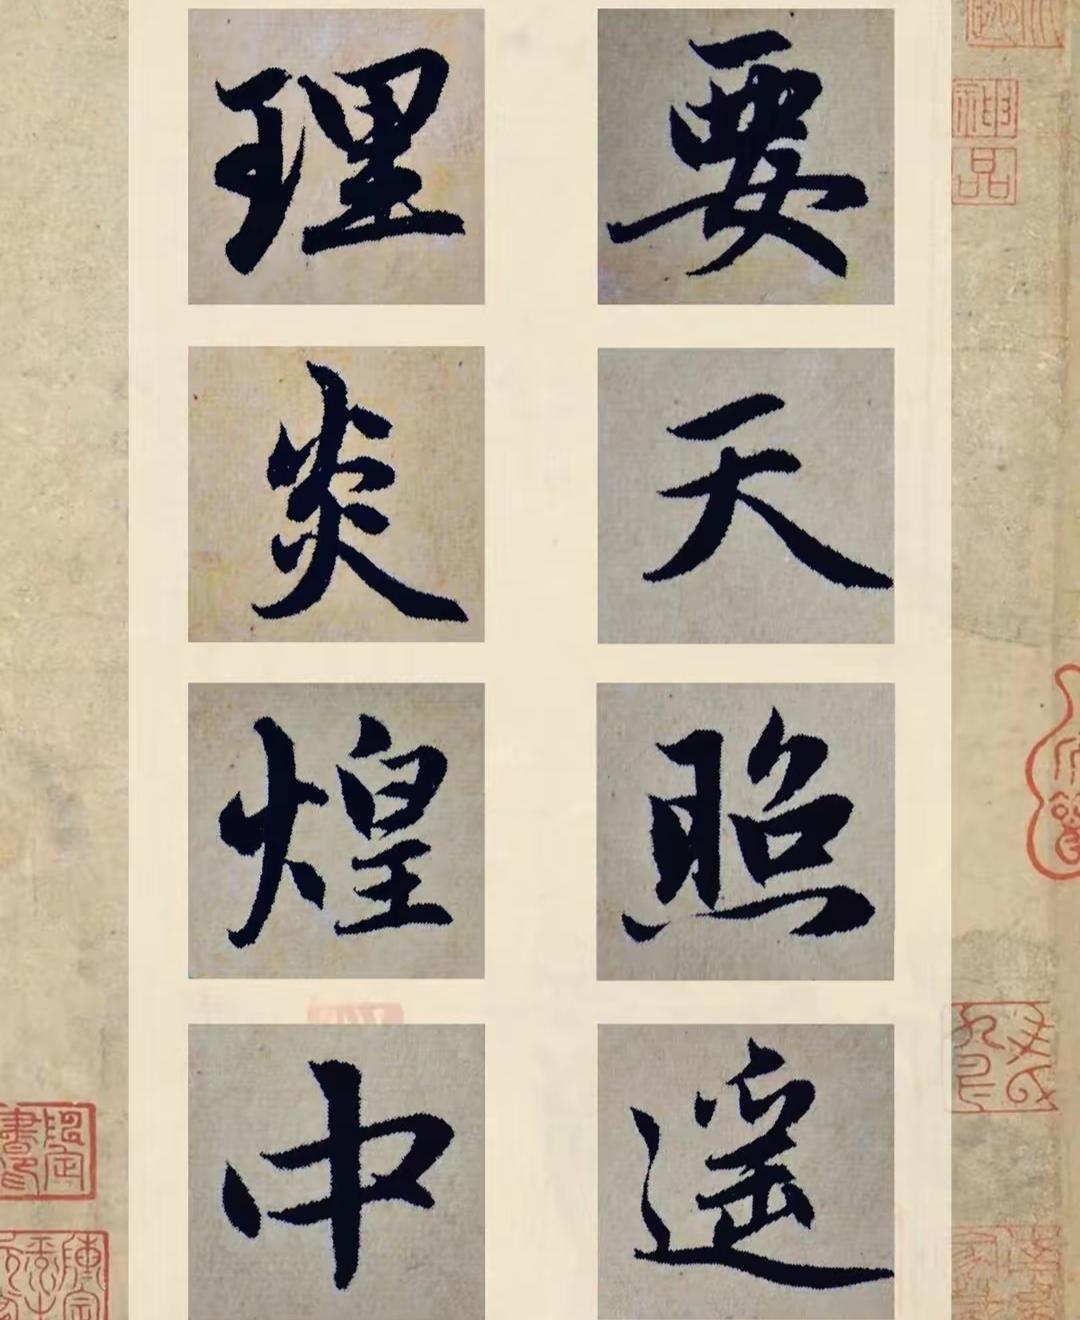 要天照遥
理炎煌中
神品